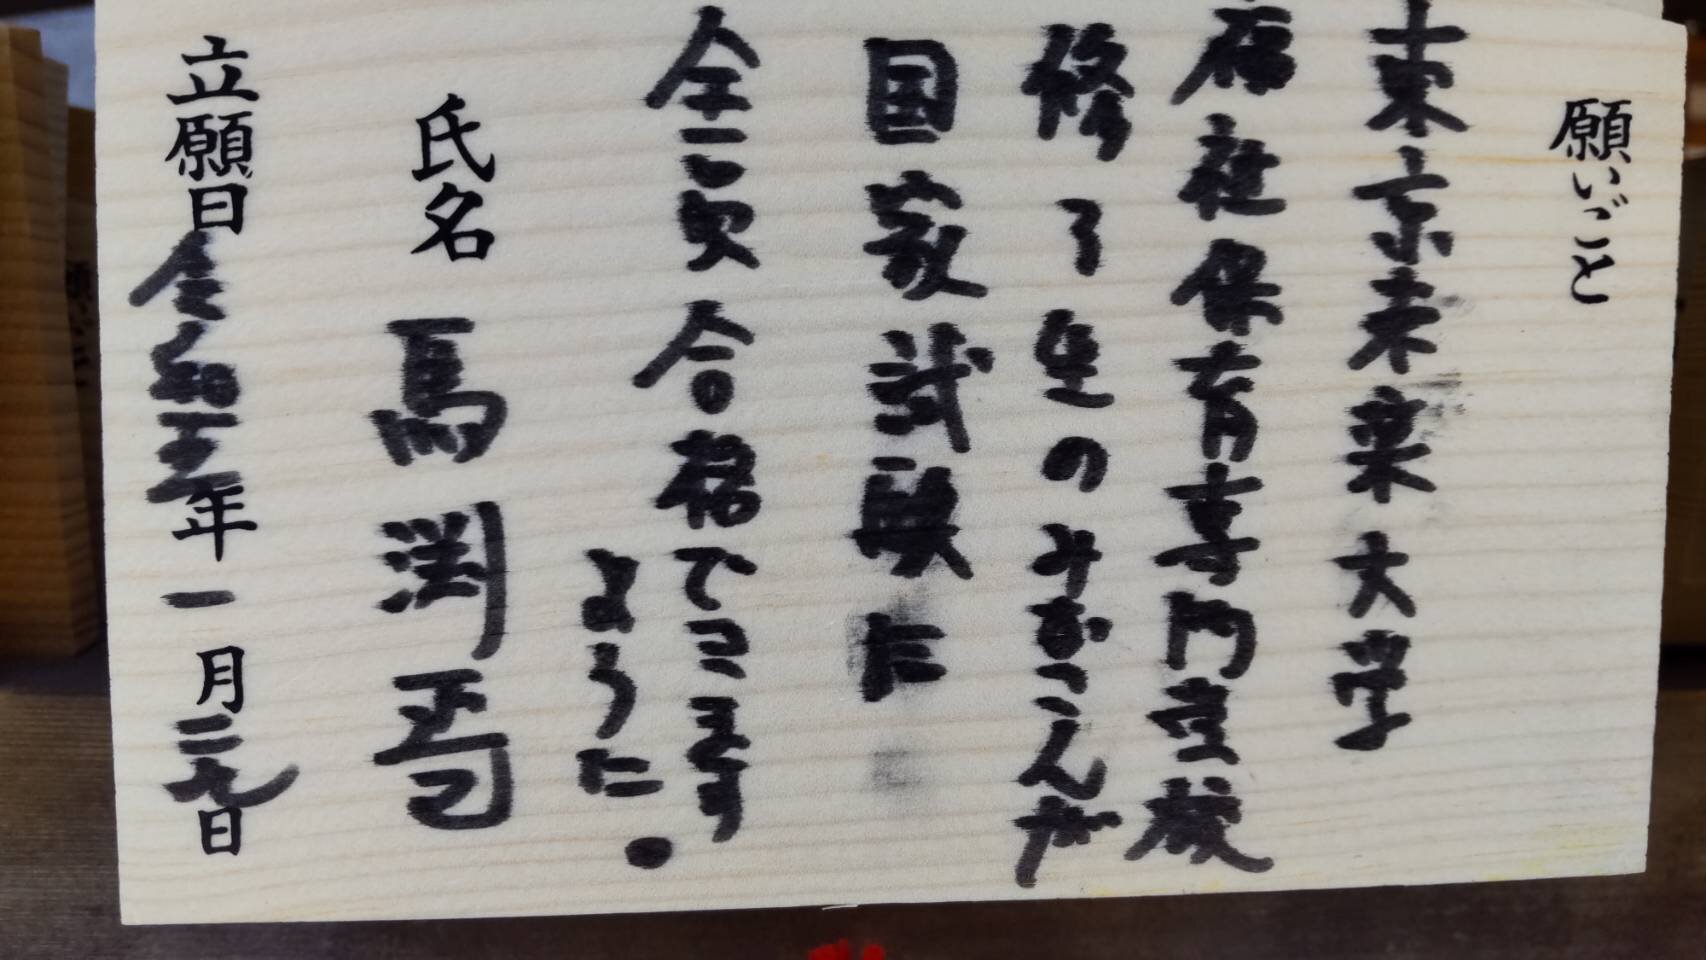 願いごと
東京未来大学
福祉保育専門学校
修了生のみなさんが
国家試験に
全員合格できます
ように。
氏名 馬渕 正司
立願日 令和五年一月二九日